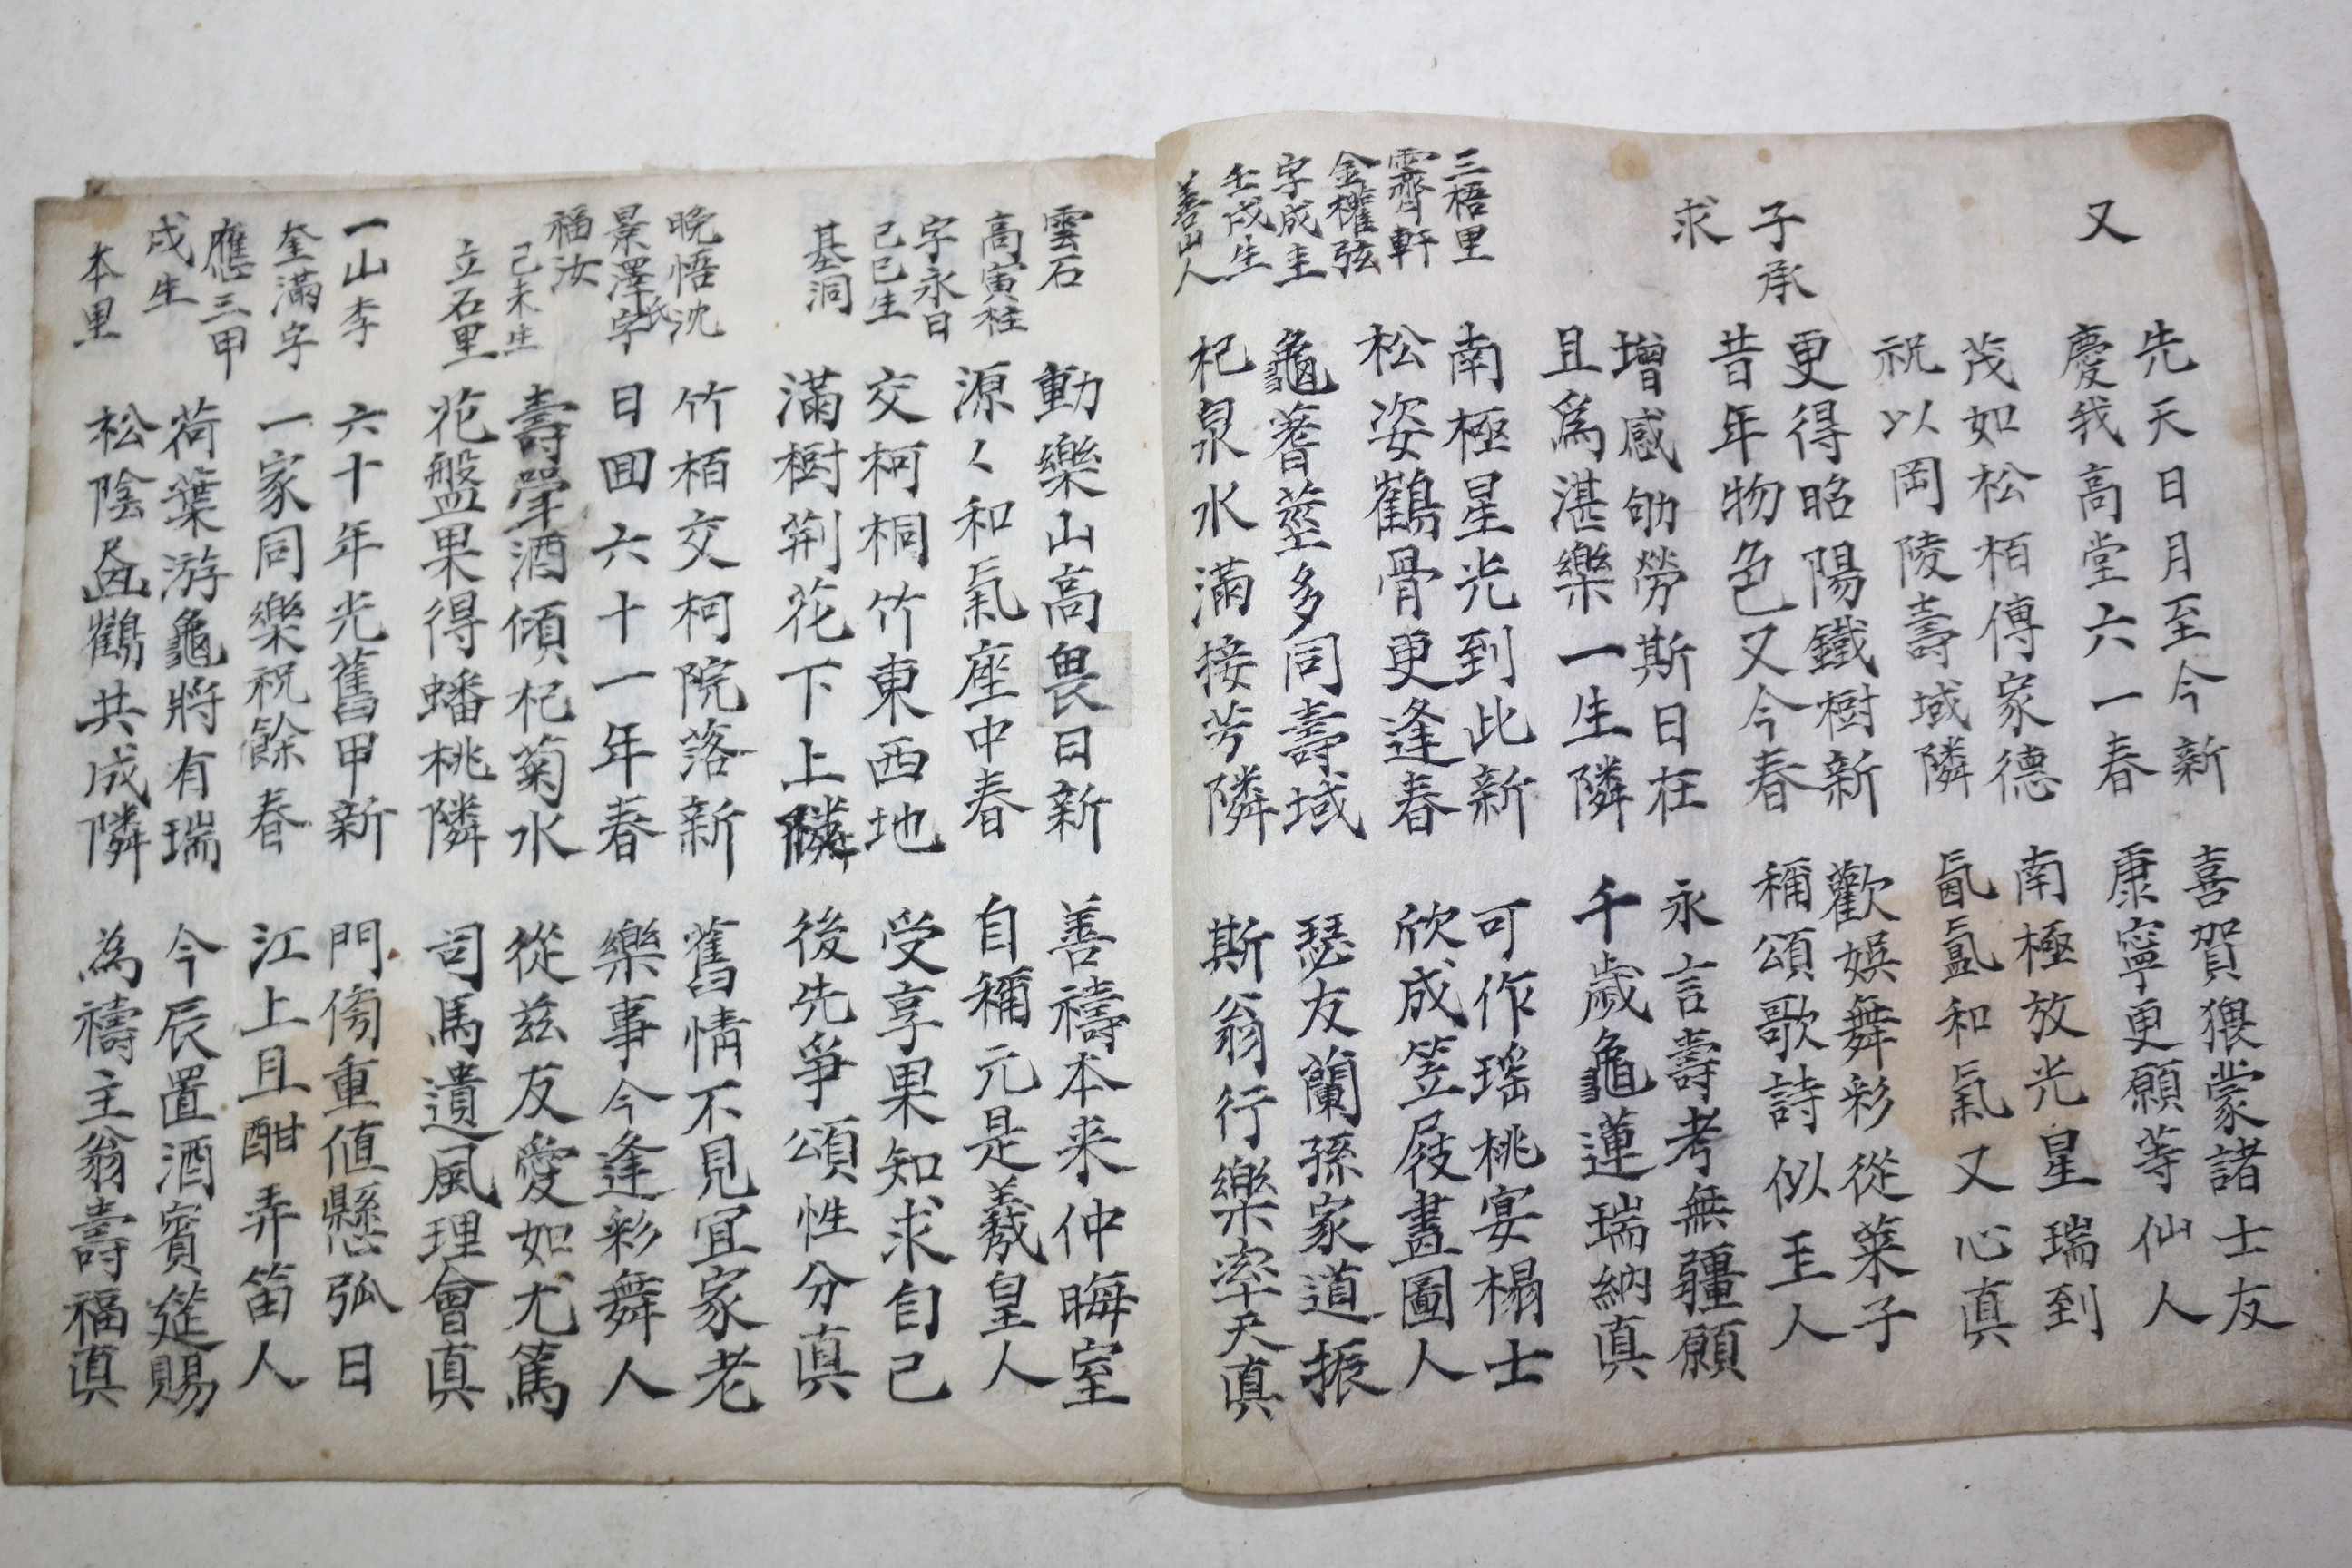 又
先天日月至今新
慶我高堂六一春
喜賀猥蒙諸士友
康寧更願等仙人
茂如松栢傳家德
祝以岡陵壽域隣
南極放光星瑞到
氤氳和氣又心眞
子承
求
更得昭陽鐵樹新
昔年物色又今春
歡娛舞彩從萊子
稱頌歌詩似主人
增感劬勞斯日在
且爲湛樂一生隣
永言壽考無疆願
千歲龜蓮瑞納眞
三梧里
霽軒
金權弦
字成圭
壬戌生
善山人
南極星光到此新
松姿鶴骨更逢春
可作瑤桃宴榻士
欣成笠屐畫圖人
龜蓍莖多同壽域
杞泉水滿接芳隣
瑟友蘭孫家道振
斯翁行樂率天眞
雲石
高寅柱
字永日
己巳生
基洞
動樂山高畏日新
源々和氣座中春
善禱本来仲晦室
自稱元是羲皇人
交柯桐竹東西地
滿樹荊花下上隣
受享果知求自己
後先爭頌性分眞
晩悟沈
景澤字
氏
福汝
己未生
立石里
竹栢交柯院落新
日回六十一年春
舊情不見宜家老
樂事今逢彩舞人
壽酒傾杞菊水
花盤果得蟠桃隣
從兹友愛如尤篤
司馬遺風理會眞
一山李
奎滿字
應三甲
戌生
本里
六十年光舊甲新
一家同樂祝餘春
門傍重値懸弧日
江上且酣弄笛人
荷葉游龜將有瑞
松陰鶴共成隣
今辰置酒賓筵賜
為禱主翁壽福眞